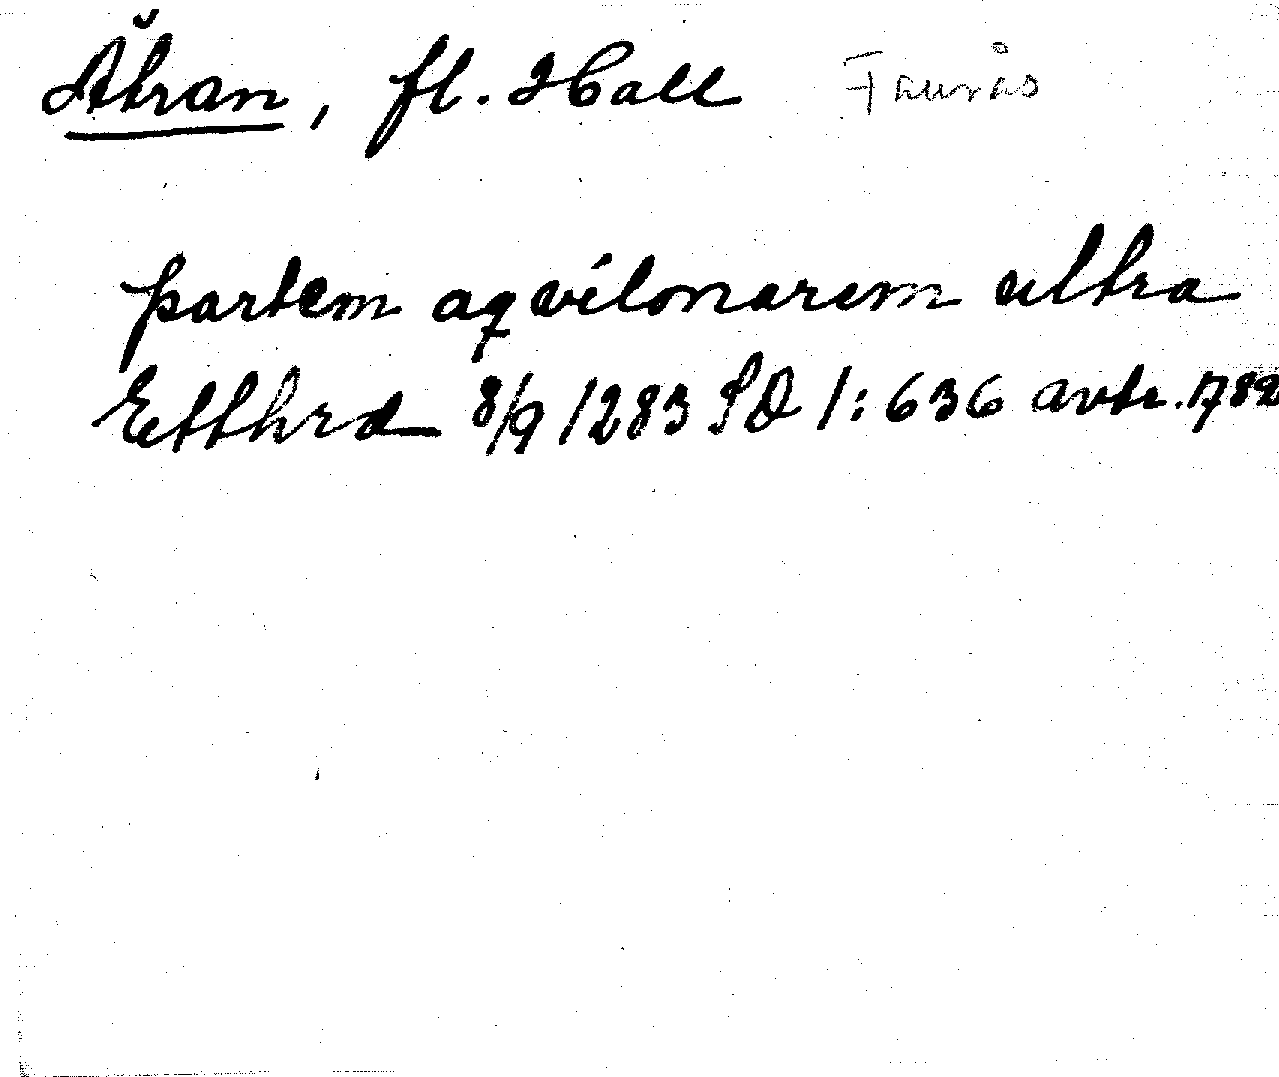 Ätran, fl. Hall Faurås
partem aqvilonarem ultra
Etthræ 8/9 1283 SD 1: 636 avtr. 1782